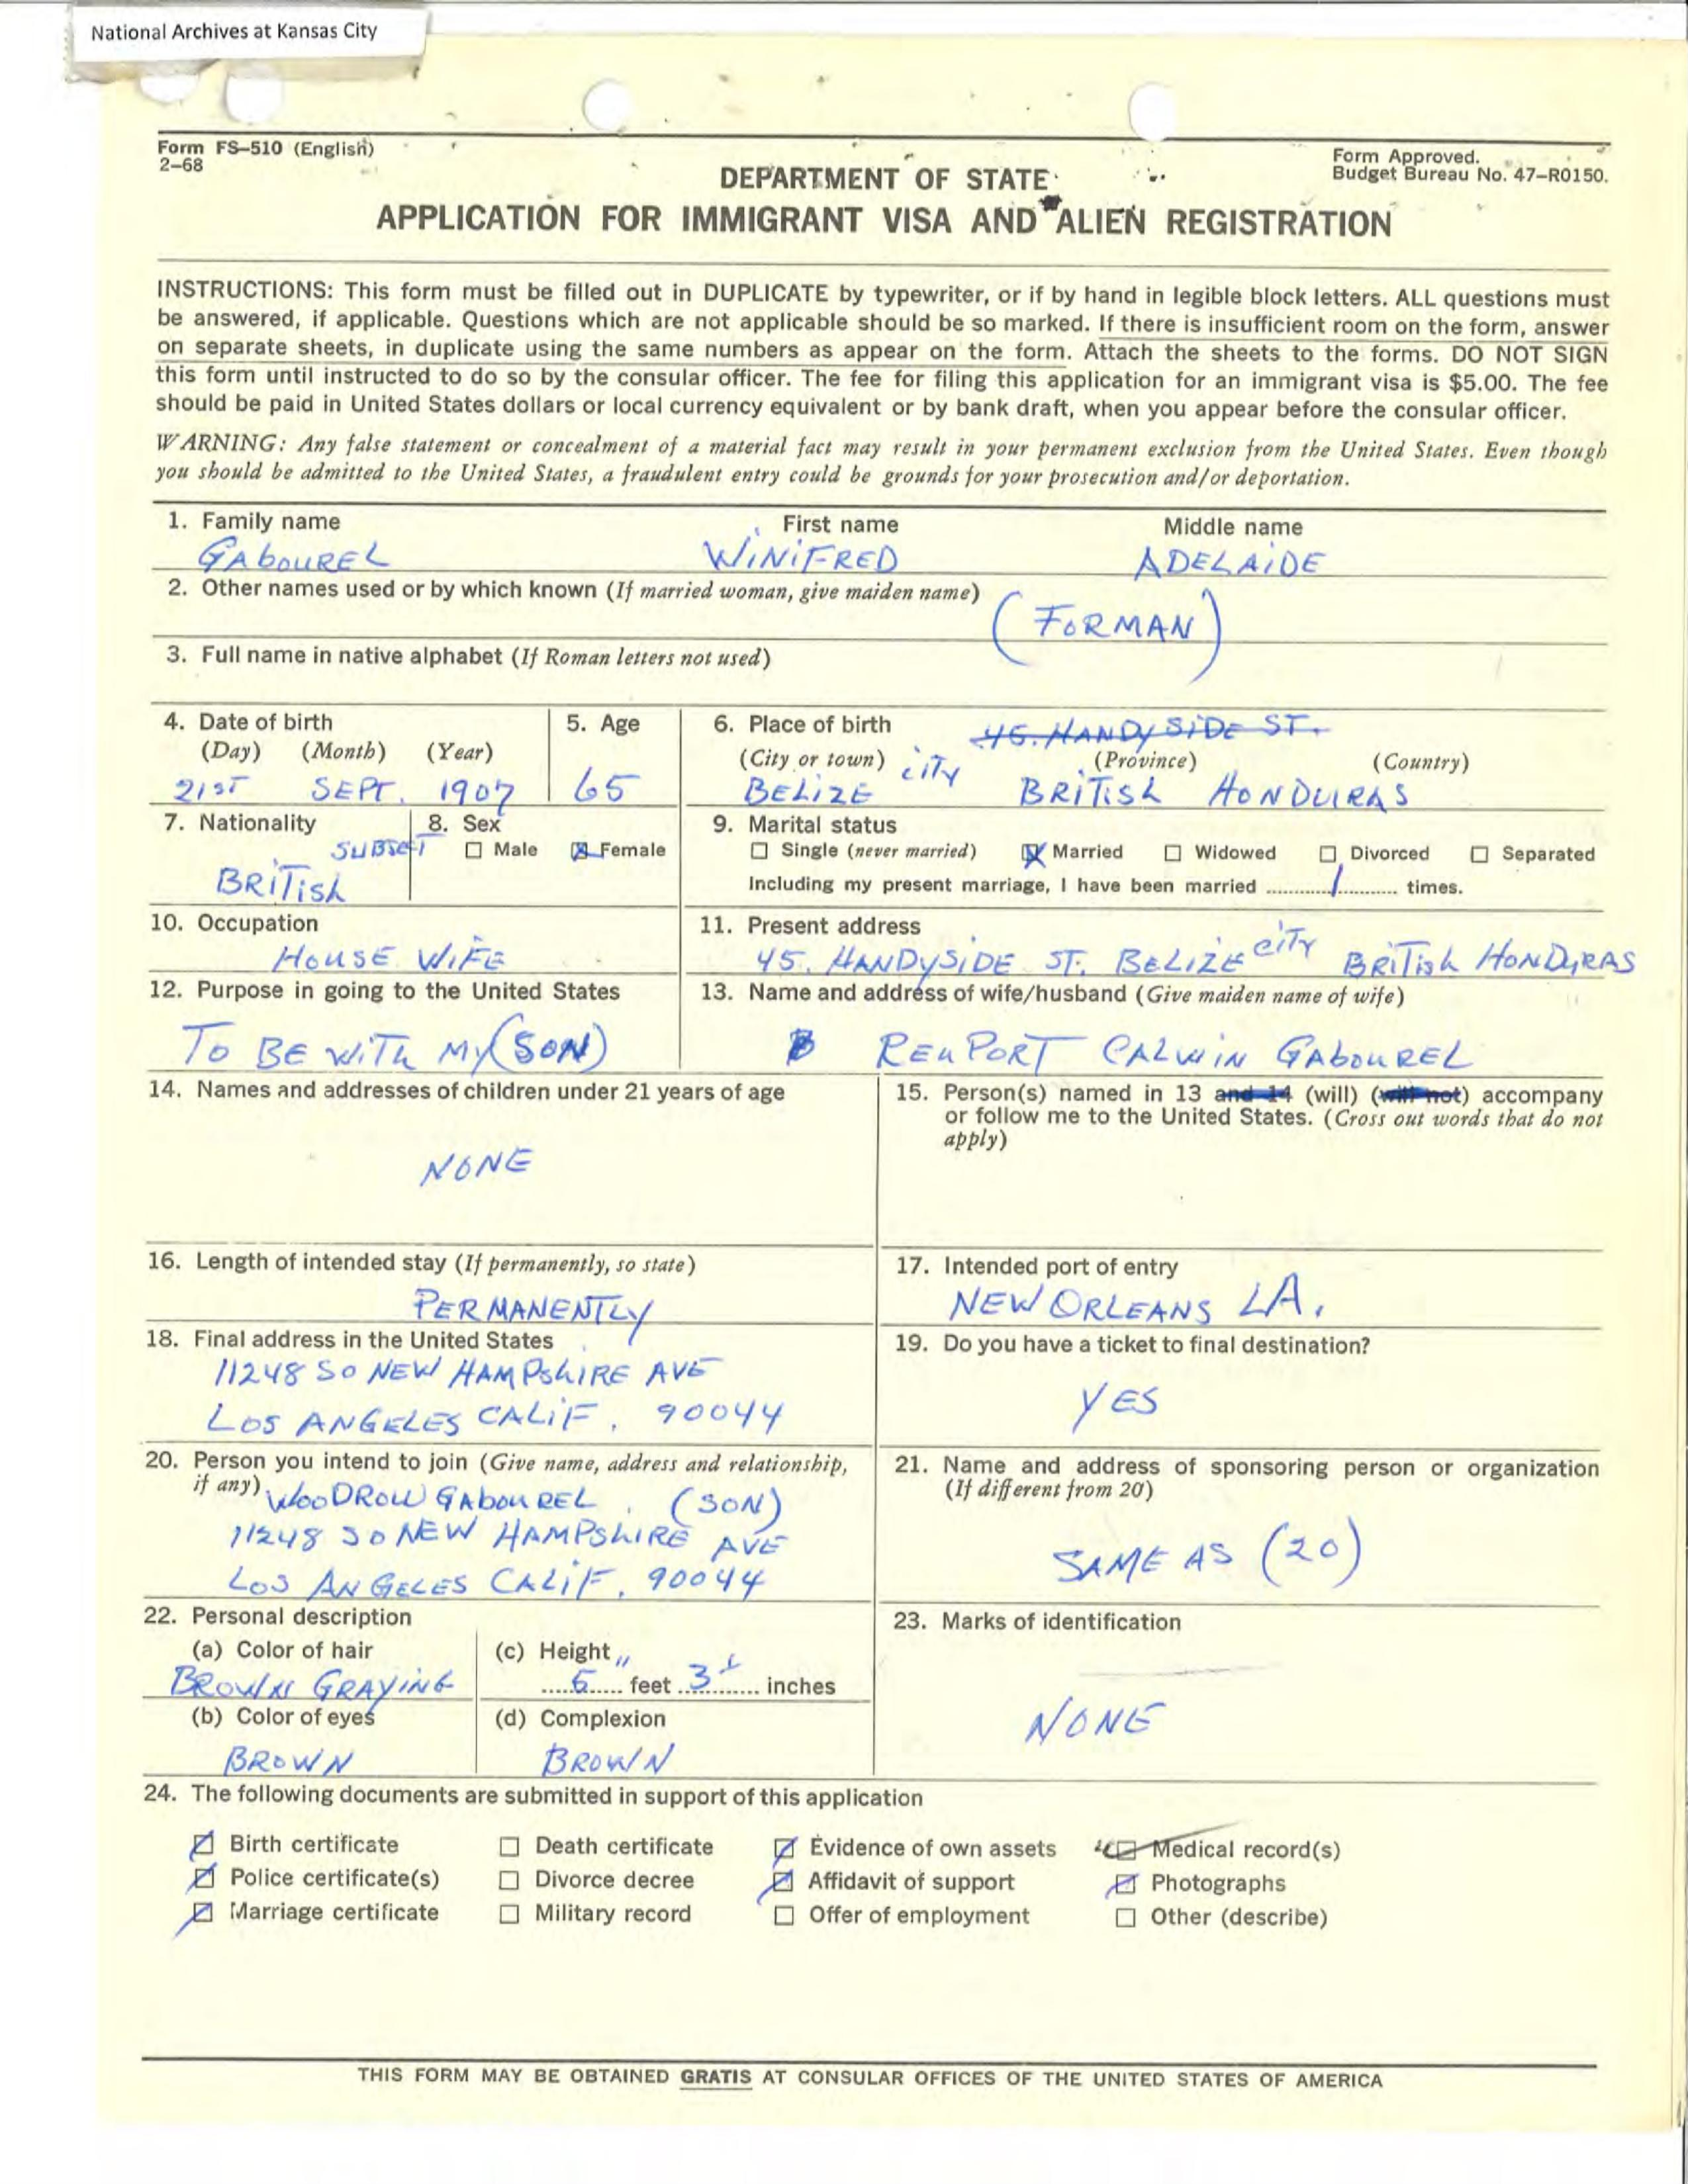 National Archives at Kansas City
Form FS–510 (English)
2–68
Form Approved.
Budget Bureau No. 47–R0150.
DEPARTMENT OF STATE
APPLICATION FOR IMMIGRANT VISA AND ALIEN REGISTRATION
INSTRUCTIONS: This form must be filled out in DUPLICATE by typewriter, or if by hand in legible block letters. ALL questions must
be answered, if applicable. Questions which are not applicable should be so marked. If there is insufficient room on the form, answer
on separate sheets, in duplicate using the same numbers as appear on the form. Attach the sheets to the forms. DO NOT SIGN
this form until instructed to do so by the consular officer. The fee for filing this application for an immigrant visa is $5.00. The fee
should be paid in United States dollars or local currency equivalent or by bank draft, when you appear before the consular officer.
WARNING: Any false statement or concealment of a material fact may result in your permanent exclusion from the United States. Even though
you should be admitted to the United States, a fraudulent entry could be grounds for your prosecution and/or deportation.
1. Family name First name Middle name
GABOUREL WINIFRED ADELAIDE
2. Other names used or by which known (If married woman, give maiden name)
(FORMAN)
3. Full name in native alphabet (If Roman letters not used)
4. Date of birth 5. Age 6. Place of birth 45. HANDYSIDE ST.
(Day) (Month) (Year) (City or town) (Province) (Country)
21ST SEPT. 1907 65 BELIZE CITY BRITISH HONDURAS
7. Nationality 8. Sex 9. Marital status
SUBJECT Male Female Single (never married) Married Widowed Divorced Separated
BRITISH Including my present marriage, I have been married 1 times.
10. Occupation 11. Present address
HOUSE WIFE 45. HANDYSIDE ST. BELIZE CITY BRITISH HONDURAS
12. Purpose in going to the United States 13. Name and address of wife/husband (Give maiden name of wife)
TO BE WITH MY (SON) CALWIN GABOUREL
14. Names and addresses of children under 21 years of age
NONE
15. Person(s) named in 13 and 14 (will) (will not) accompany
or follow me to the United States. (Cross out words that do not
apply)
16. Length of intended stay (If permanently, so state)
PERMANENTLY
17. Intended port of entry
NEW ORLEANS LA.
18. Final address in the United States
11248 SO NEW HAMPSHIRE AVE
LOS ANGELES CALIF. 90044
19. Do you have a ticket to final destination?
YES
20. Person you intend to join (Give name, address and relationship,
if any) WOODROW GABOUREL. (SON)
11248 SO NEW HAMPSHIRE AVE
LOS ANGELES CALIF. 90044
21. Name and address of sponsoring person or organization
(If different from 20)
SAME AS (20)
22. Personal description
(a) Color of hair (c) Height
BROWN GRAYING 5 feet 3 inches
(b) Color of eyes (d) Complexion
BROWN BROWN
23. Marks of identification
NONE
24. The following documents are submitted in support of this application
Birth certificate Death certificate Evidence of own assets Medical record(s)
Police certificate(s) Divorce decree Affidavit of support Photographs
Marriage certificate Military record Offer of employment Other (describe)
THIS FORM MAY BE OBTAINED GRATIS AT CONSULAR OFFICES OF THE UNITED STATES OF AMERICA